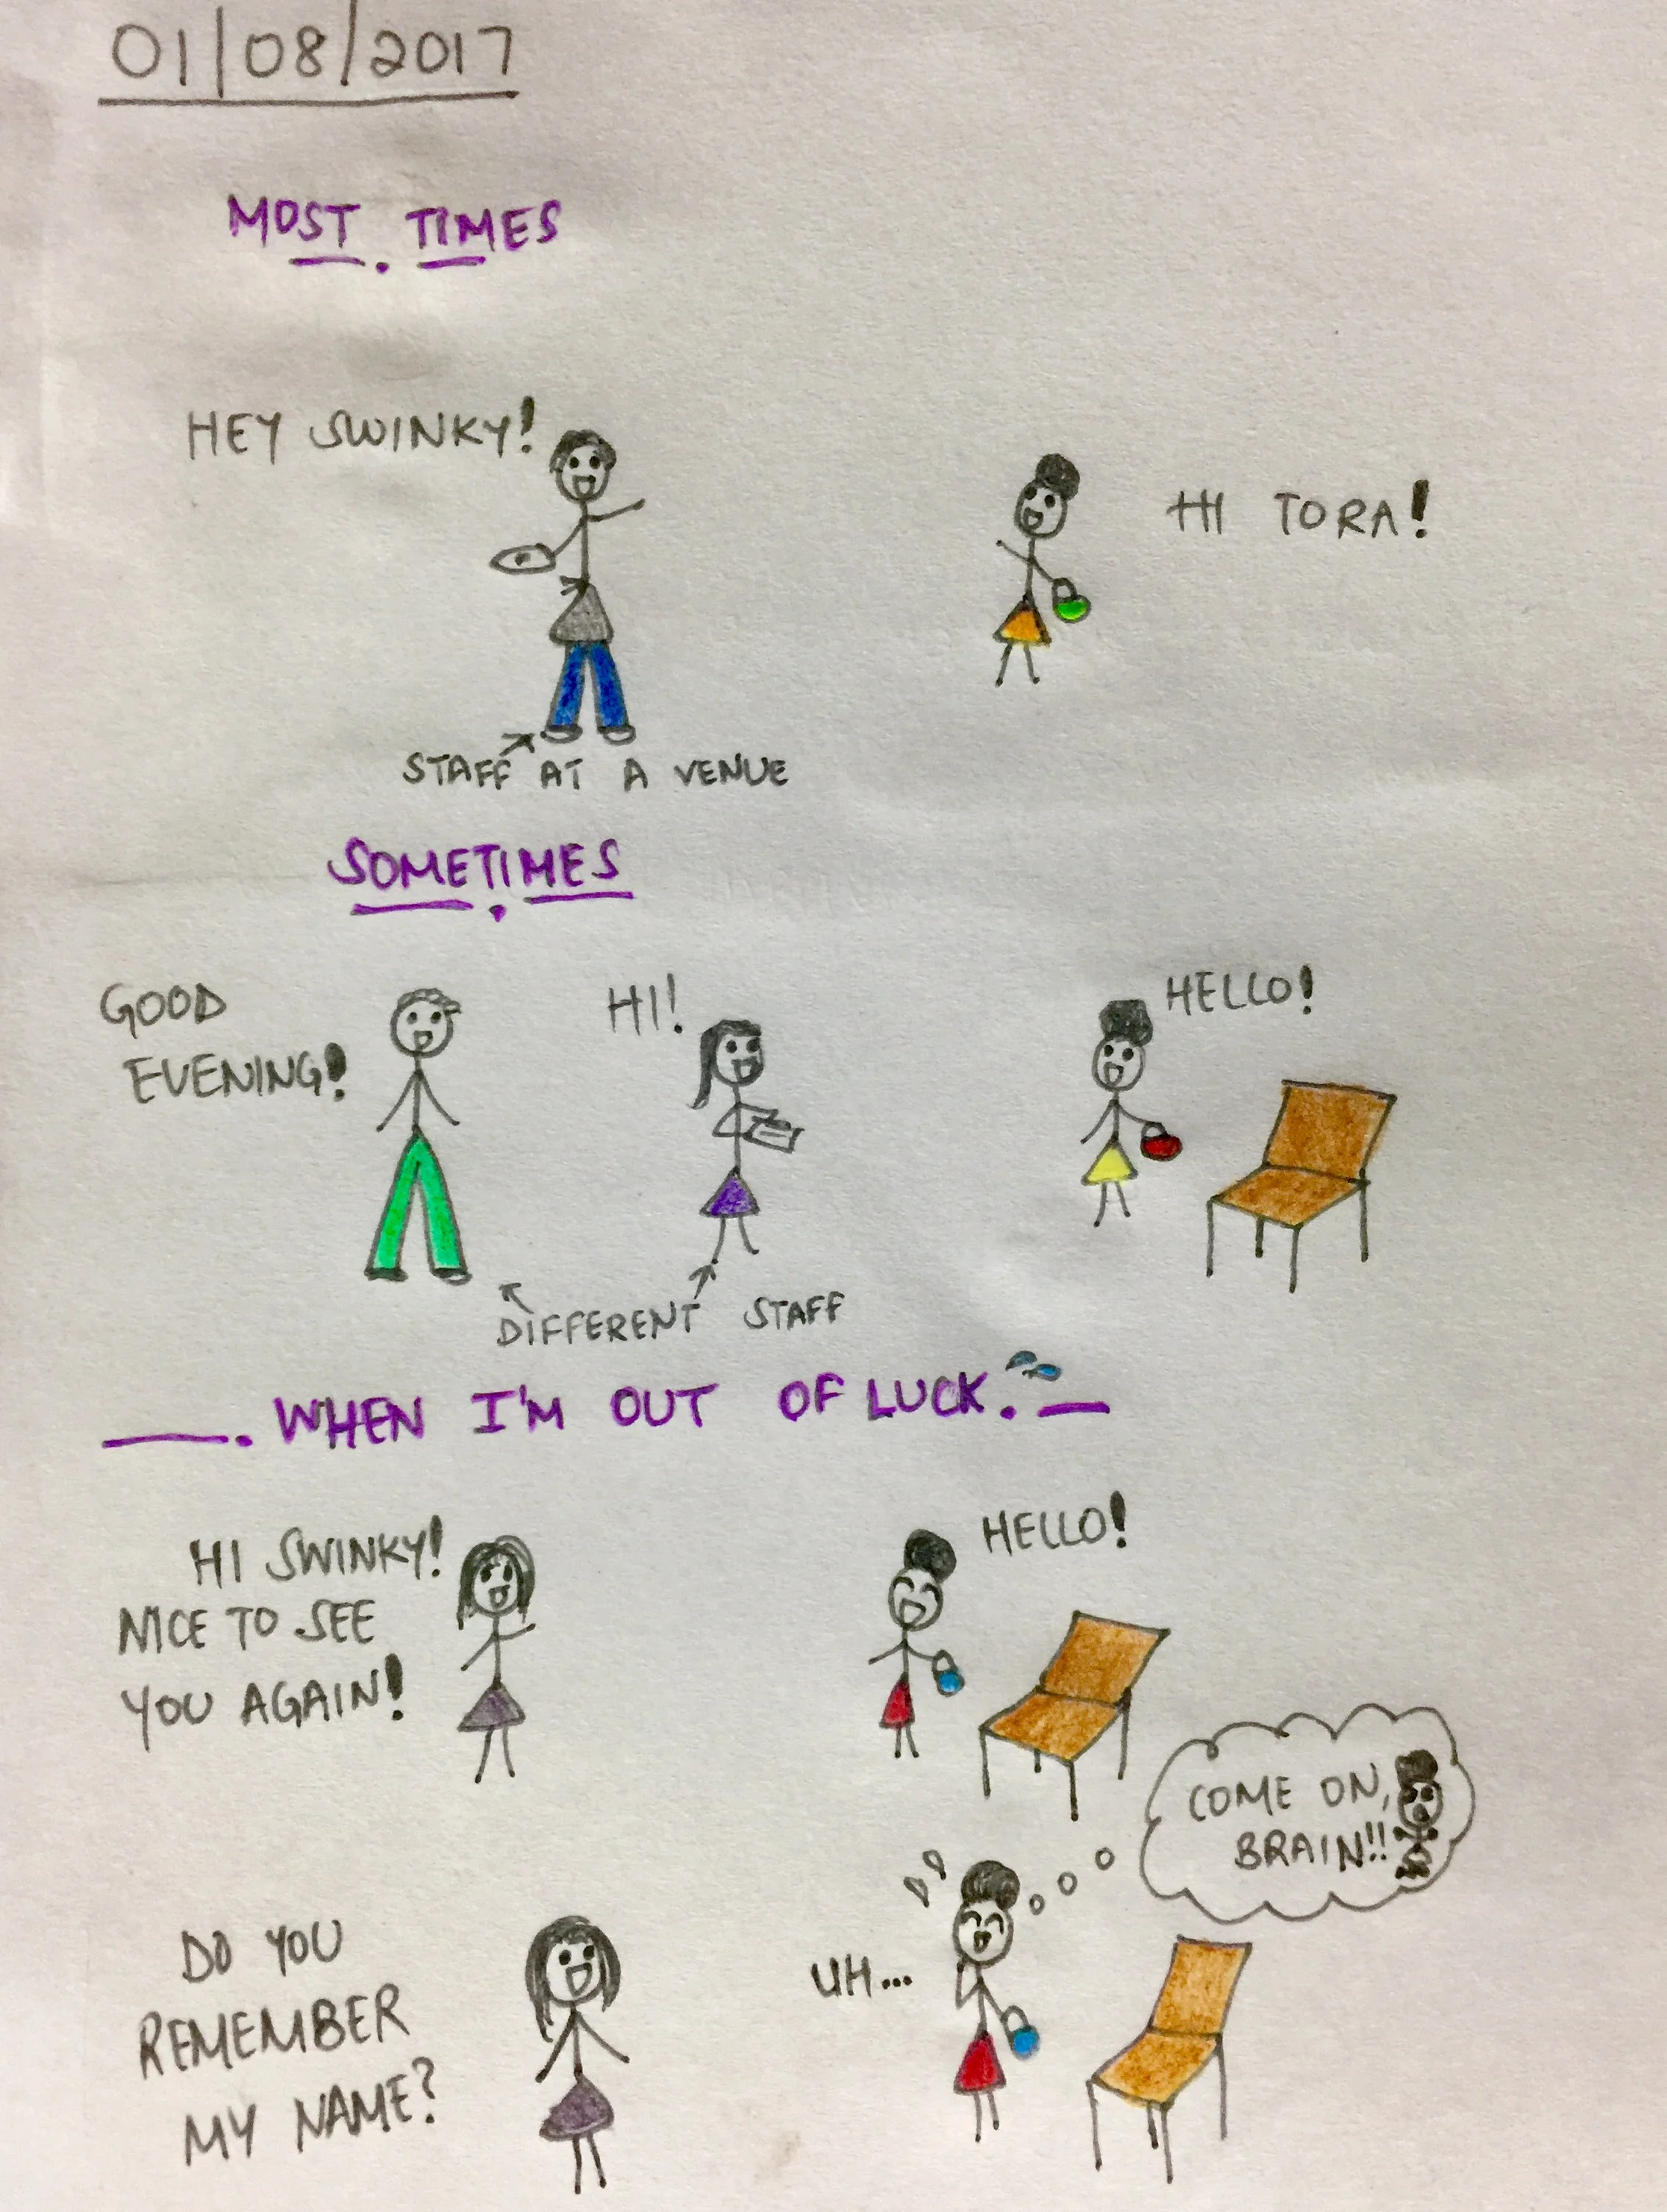 01/08/2017
MOST TIMES
HEY SWINKY!
HI TORA!
STAFF AT A VENUE
SOMETIMES
GOOD
EVENING!
HI!
HELLO!
DIFFERENT STAFF
WHEN I'M OUT OF LUCK.
HI SWINKY!
NICE TO SEE
YOU AGAIN!
HELLO!
COME ON,
BRAIN!!
DO YOU
REMEMBER
MY NAME?
UH...